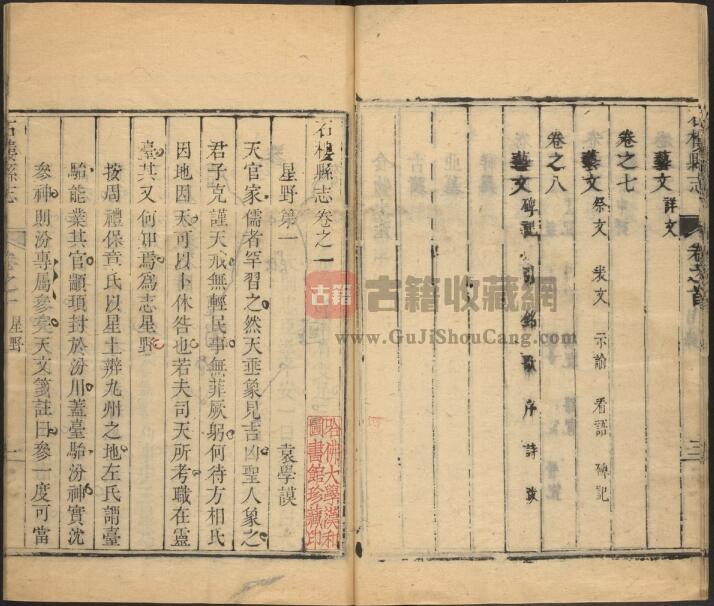 藝文 詳文
卷之七
藝文 祭文 示諭 看語 碑記
卷之八
藝文 碑記 引 銘 歌 序 詩
石樓縣志
卷之首
三
石樓縣志卷之一
星野第一
袁學謨
天官家儒者罕習之然天垂象見吉凶聖人象之
君子克謹天戒無輕民事無菲厥躬何待方相氏
因地因天可以卜休咎也若夫司天所考職在靈
臺其又何知焉為志星野
按周禮保章氏以星土辨九州之地左氏謂臺
駘能業其官顓頊封於汾川蓋臺駘汾神實沈
參神則汾專屬參矣天文箋註曰參一度可當
石樓縣志
卷之一
星野
一
哈佛大學漢和
圖書館珍藏印
古籍
古籍收藏網
www.GuJiShouCang.com